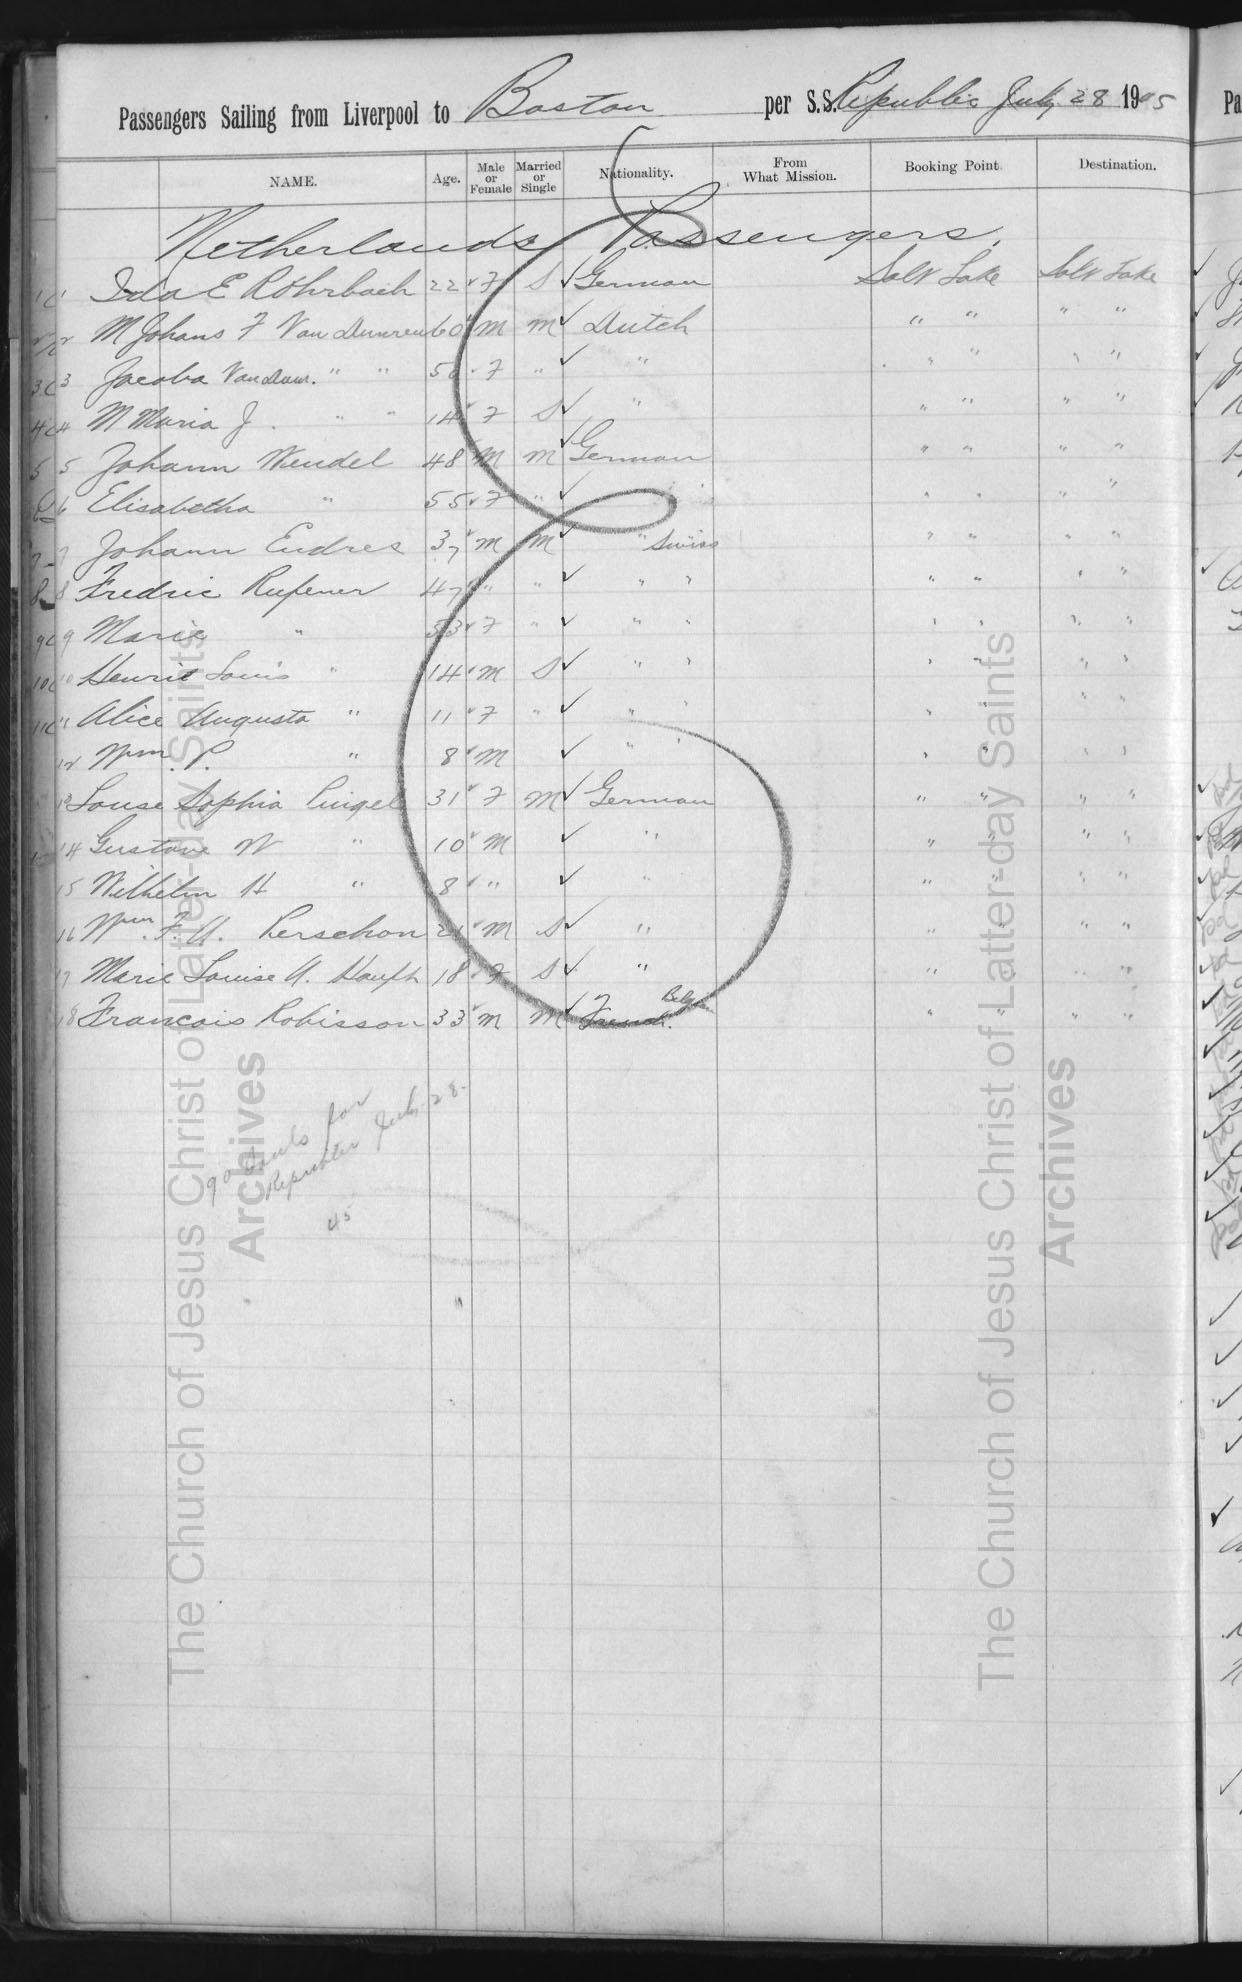 Passengers Sailing from Liverpool to Boston per S.S. Republic July 28 1905
NAME. Age. Male or Female Married or Single Nationality. From What Mission. Booking Point. Destination.
Netherlands Passengers.
1 Ida E Rohrbach 22 F S German Salt Lake Salt Lake
2 M Johans F Van 60 M M Dutch " " " "
3 Jacoba Van Dam. " " F " " " " " "
4 M Maria J. " " 14 F S " " " " "
5 Johann Wendel 48 M M German " " " "
6 Elisabetha " 55 F " " " " " "
7 Johann Endres 37 M M " Swiss " " " "
8 Fredric Rufener 47 " " " " " " " "
9 Marie " 53 F " " " " " " "
10 Henrie Louis " 14 M S " " " " " "
11 Alice Augusta " 11 F " " " " " " "
12 Wm. P. " 8 M " " " " " "
13 Louse Sophia Pingel 31 F M German " " " "
14 Gustave W " 10 M " " " " "
15 Wilhelm H " 8 " " " " " "
16 Wm. F. A. Perschon 21 M S " " " " "
17 Marie Louise A. Haupt 18 F S " " " " "
18 Francois Robisson 33 M M French. Belgian " " " "
90 Souls for
Republic July 28-
45
The Church of Jesus Christ of Latter-day Saints
Archives
The Church of Jesus Christ of Latter-day Saints
Archives